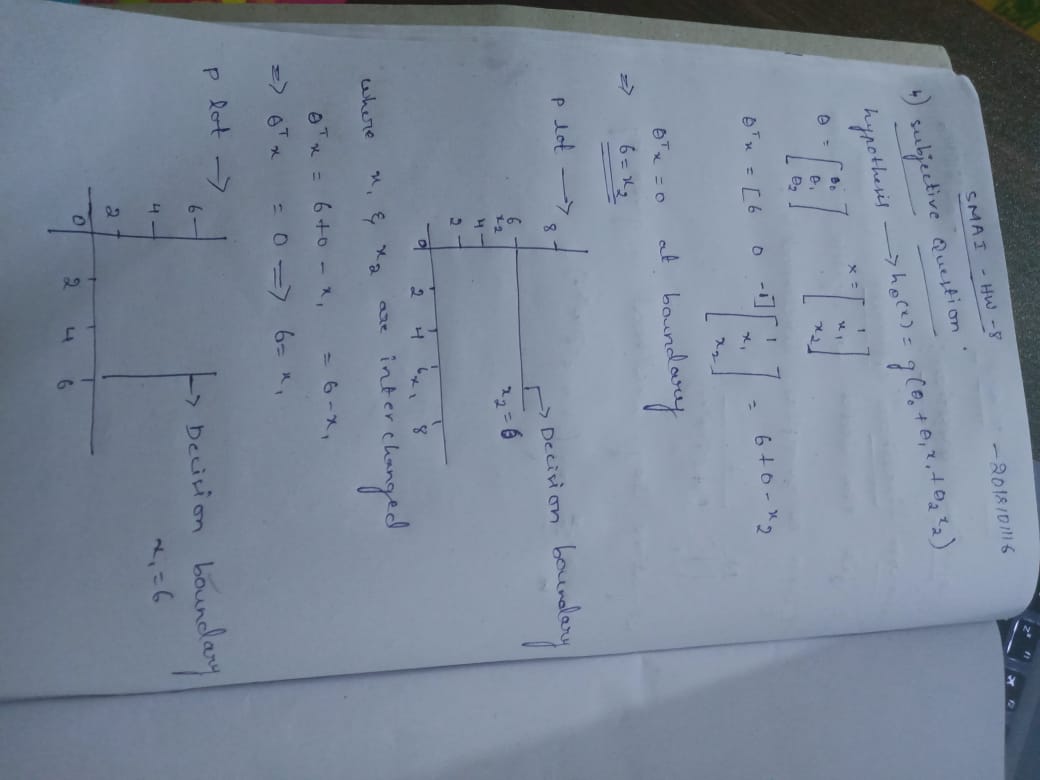 SMAI - HW - 8
- 2018101116
4) subjective Question
hypothesis → hθ(x) = g(θ₀ + θ₁x₁ + θ₂x₂)
θ = [θ₀ θ₁ θ₂] x = [1 x₁ x₂]
θᵀx = [6 0 -1] [1 x₁ x₂] = 6+0-x₂
θᵀx = 0 at boundary
⇒ 6 = x₂
plot →
8
6
x₂
4
2
0 2 4 6 x₁ 8
→ Decision boundary
x₂ = 6
where x₁ & x₂ are interchanged
θᵀx = 6+0-x₁ = 6-x₁
⇒ θᵀx = 0 ⇒ 6 = x₁
plot →
6
4
2
0 2 4 6
→ Decision boundary
x₁ = 6